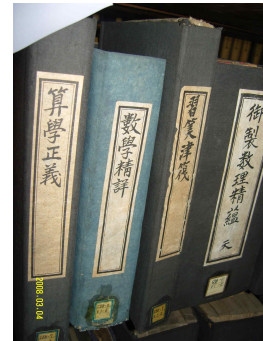 算學正義
數學精詳
習算津筏
御製数理精蘊 天
2008.03.04